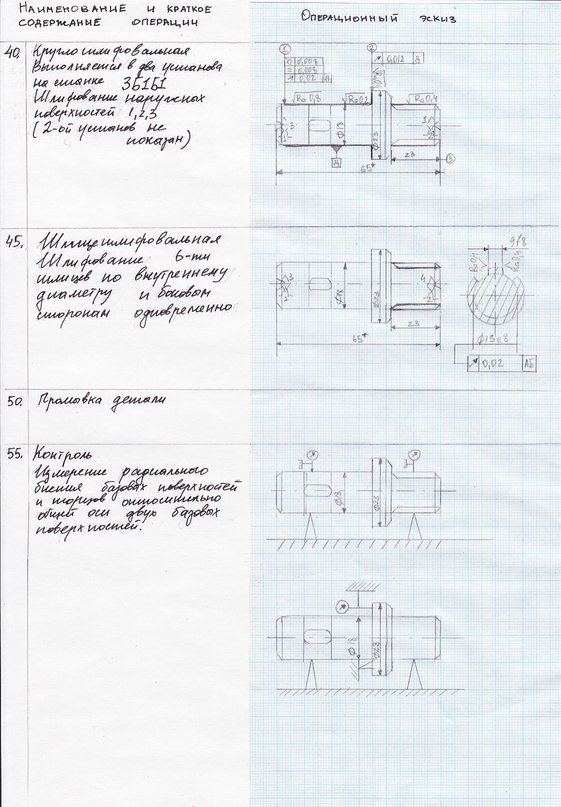 Наименование и краткое
содержание операции
Операционный эскиз
40. Круглошлифовальная
Выполняется в два установа
на станке 3Б151
Шлифование наружных
поверхностей 1,2,3
(2-ой установ не
показан)
1
2
0,008
0,008
0,02
0,012 Д
Ra 0,8
Ra 0,2
Ra 0,4
Ф23
Д
23
3
65*
45. Шлицешлифовальная
Шлифование 6-ти
шлицев по внутреннему
диаметру и боковым
сторонам одновременно
Ф18
Ф23
23
65*
Ф13е8
0,02 АБ
50. Промывка детали
55. Контроль
Измерение радиального
биения базовых поверхностей
и торцов относительно
общей оси двух базовых
поверхностей.
Ф18
Ф23
Ф18
Ф23